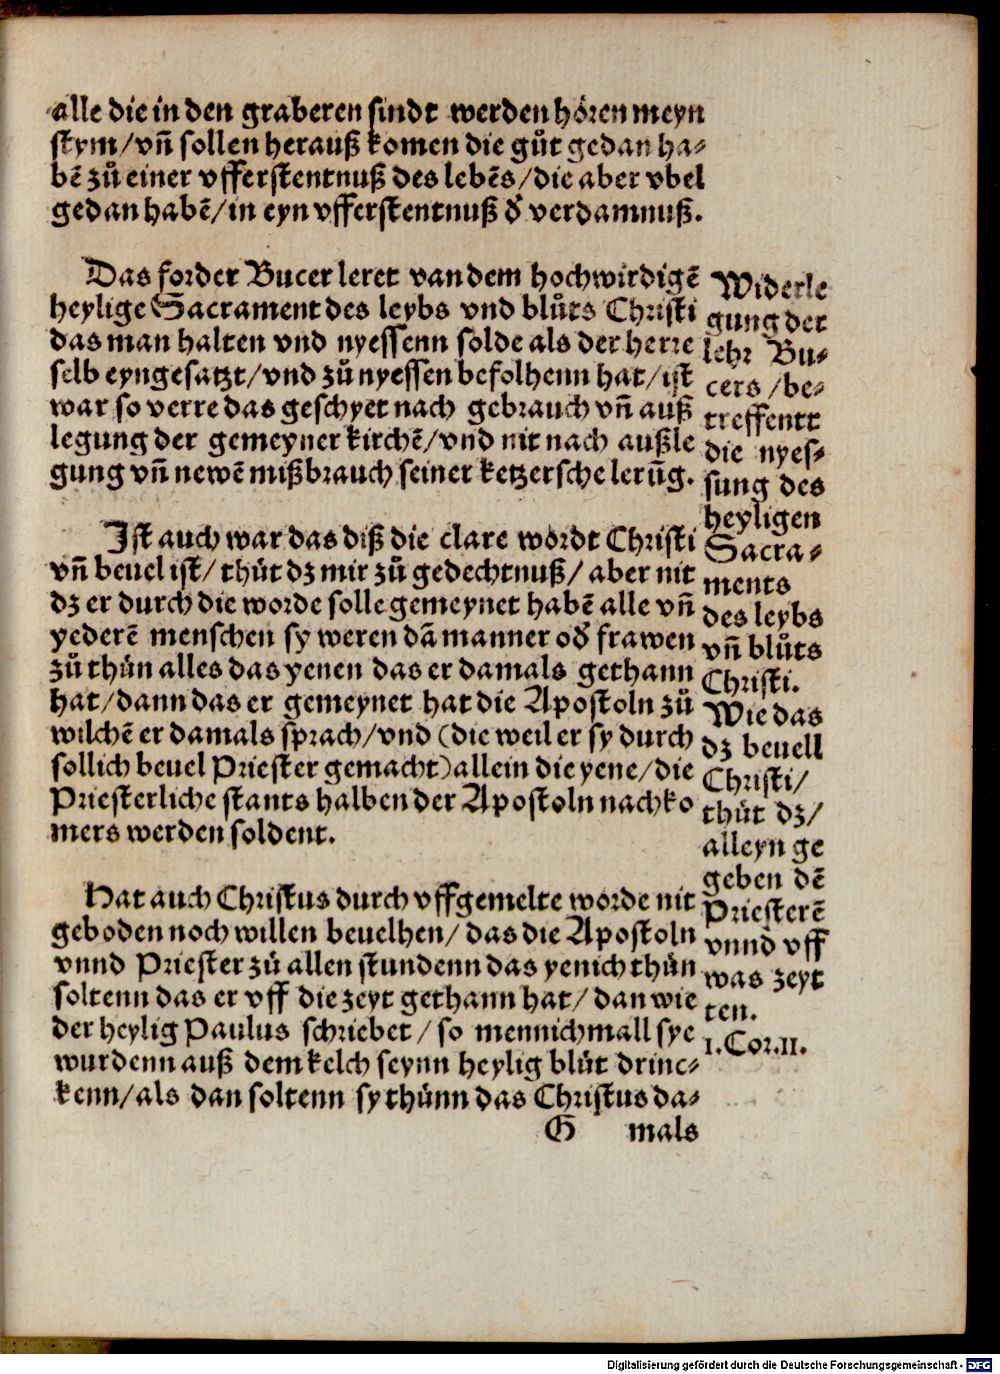 alle die in den graberen sindt werden hören meyn
stym/vñ sollen herauß komen die gůt gedan ha⸗
bē zů einer vfferstentnuß des lebēs/die aber vbel
gedan habē/in eyn vfferstentnuß d' verdamnuß.
Das forder Bucer leret van dem hochwirdigē
heylige Sacrament des leybs vnd blůts Christi
das man halten vnd nyessenn solde als der herre
selb eyngesatzt/vnd zů nyessen befolhenn hat/ist
war so verre das geschyet nach gebrauch vñ auß
legung der gemeyner kirchē/vnd nit nach außle
gung vñ newē mißbrauch seiner ketzersche lerūg.
Ist auch war das diß die clare wordt Christi
vñ beuel ist/thůt dz mir zů gedechtnuß/aber nit
dz er durch die worde solle gemeynet habē alle vñ
yederē menschen sy weren dā manner od' frawen
zů thůn alles das yenen das er damals gethann
hat/dann das er gemeynet hat die Apostoln zů
wilchē er damals sprach/vnd (die weil er sy durch
sollich beuel Priester gemacht) allein die yene/die
Priesterliche stants halben der Apostoln nachko
mers werden soldent.
Hat auch Christus durch vffgemelte worde nit
geboden noch willen beuelhen/das die Apostoln
vnnd Priester zů allen stundenn das yenich thůn
soltenn das er vff die zeyt gethann hat/dan wie
der heylig Paulus schriebet/so mennichmall sye
wurdenn auß dem kelch seynn heylig blůt drinc⸗
kenn/als dan soltenn sy thůnn das Christus da⸗
G mals
Widerle
gung der
lehr Bu⸗
cers/be⸗
treffentt
die nyes⸗
sung des
heyligen
Sacra⸗
ments
des leybs
vñ blůts
Christi.
Wie das
dz beuell
Christi/
thůt dz/
alleyn ge
geben dē
Priesterē
vnnd vff
was zeyt
ten.
1.Cor.11.
Digitalisierung gefördert durch die Deutsche Forschungsgemeinschaft - DFG